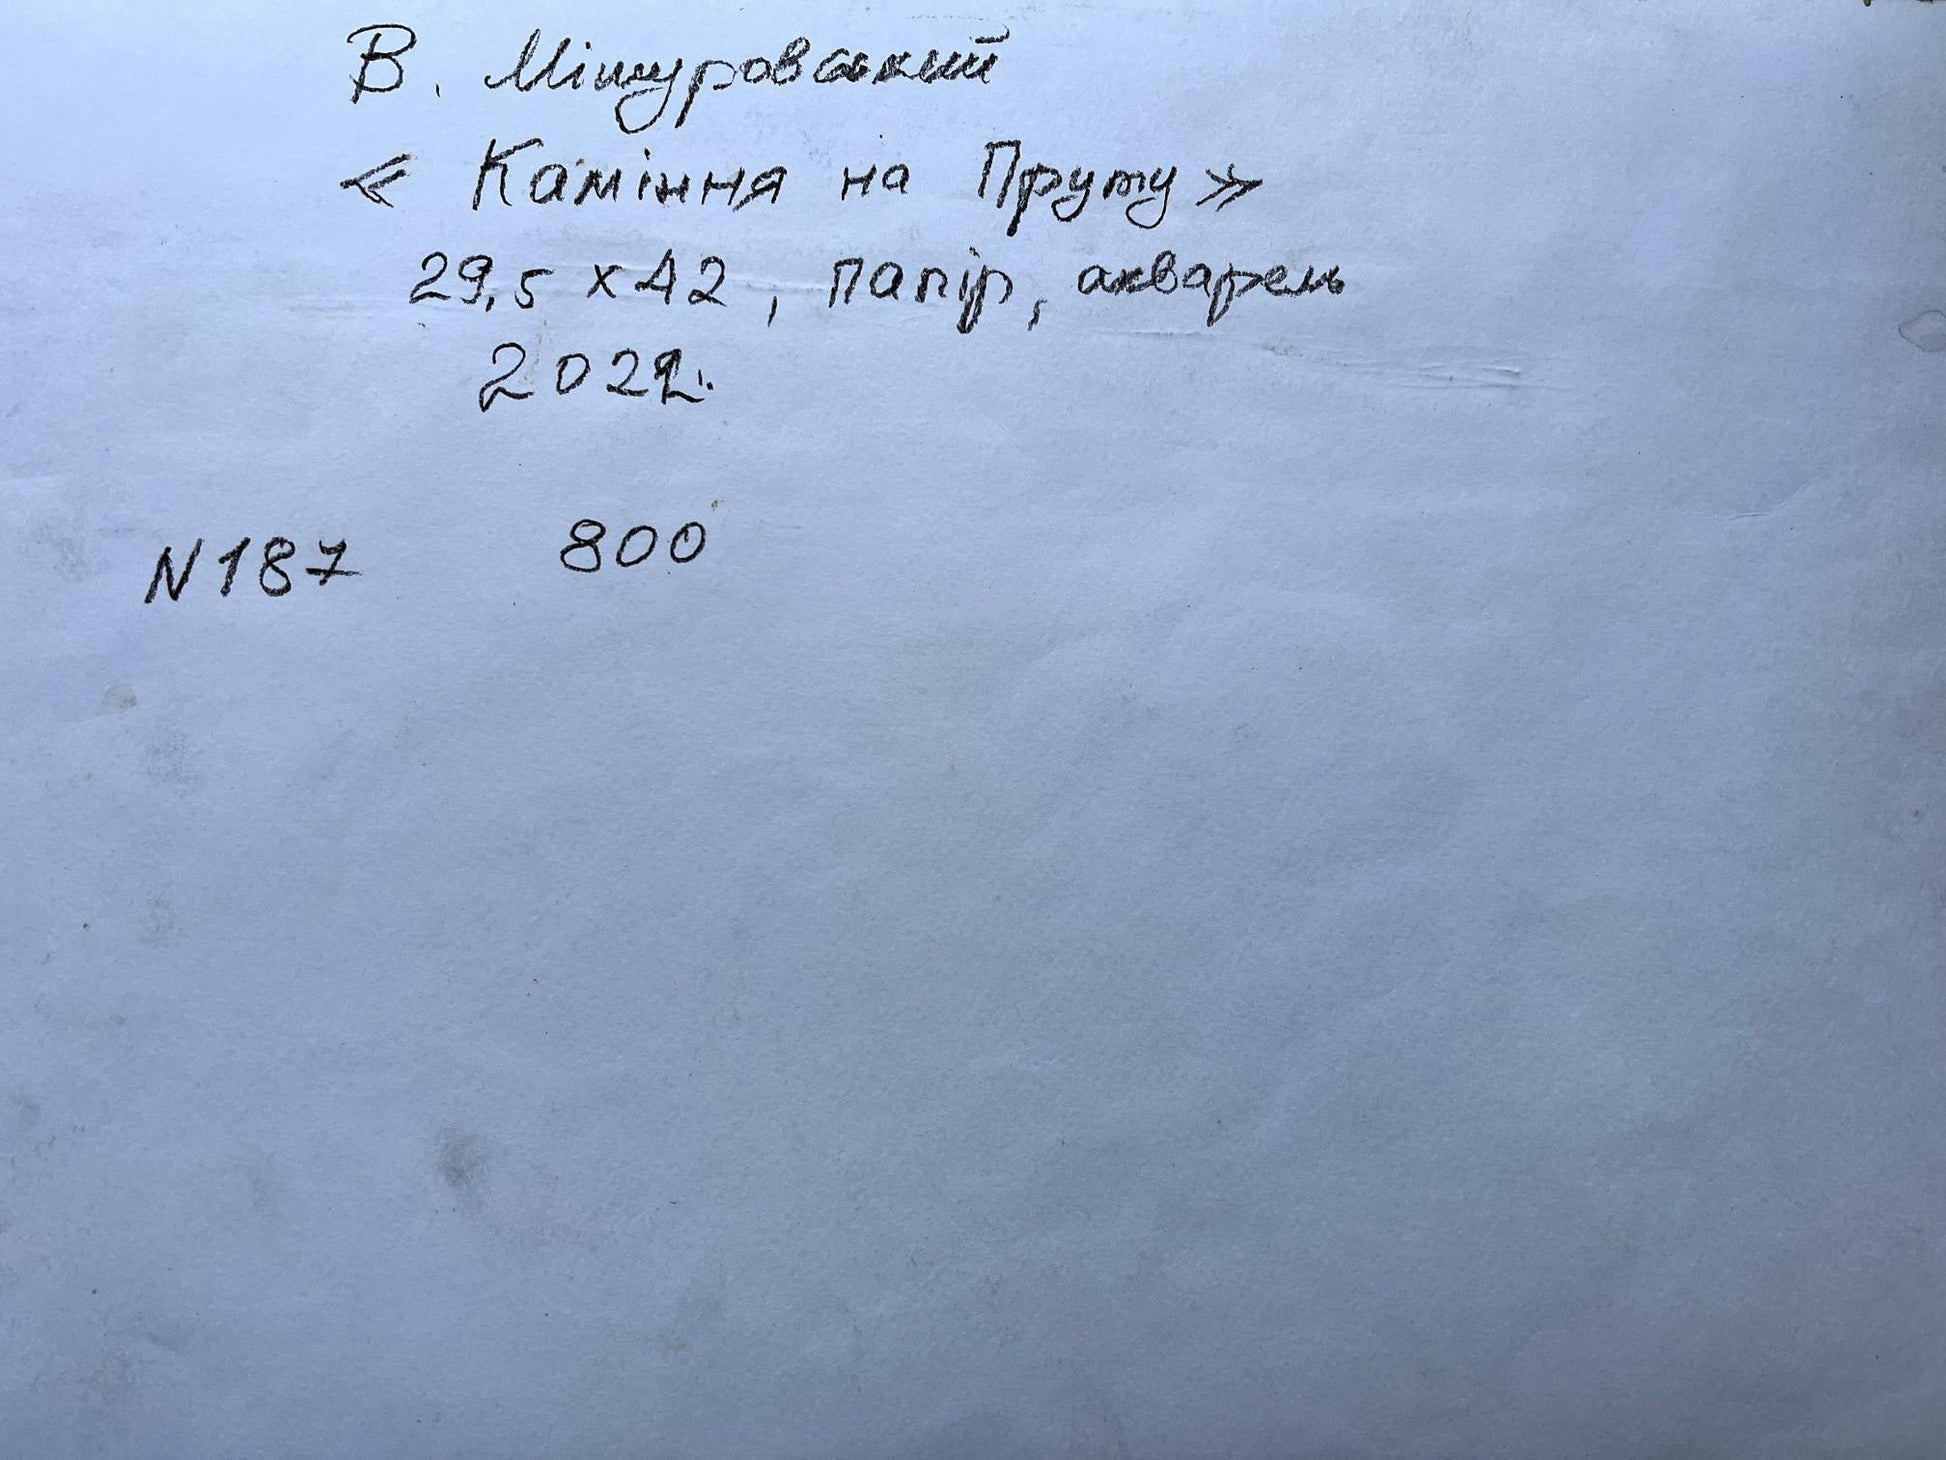 В. Мішуровський
« Каміння на Пруту »
29,5 х 42, папір, акварель
2022.
N 187 800